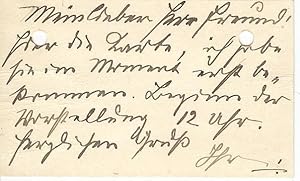 Mein lieber Herr Freund!
hier die Karte, ich habe
sie im Moment erst be-
kommen. Beginn der
Vorstellung 12 Uhr.
Herzlichen Gruß
Ihr